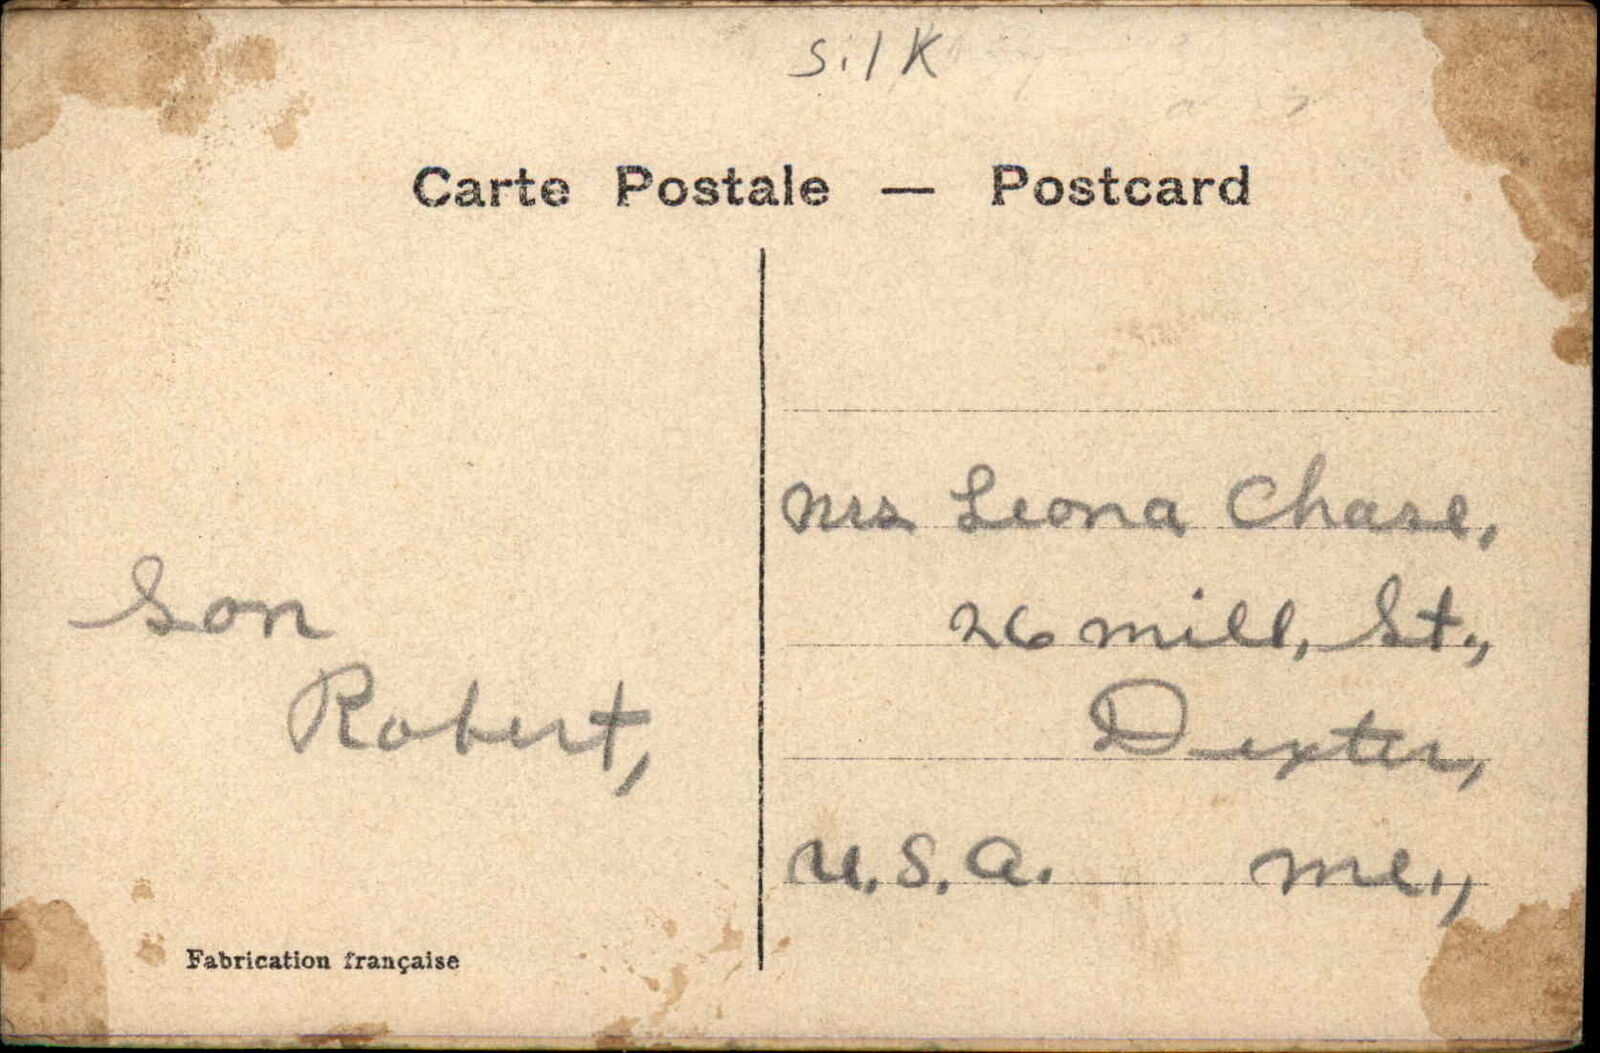 Silk
Carte Postale — Postcard
Mrs Leona Chase,
26 Mill, St.,
Dexter,
U.S.A. Me.,
Son
Robert,
Fabrication française